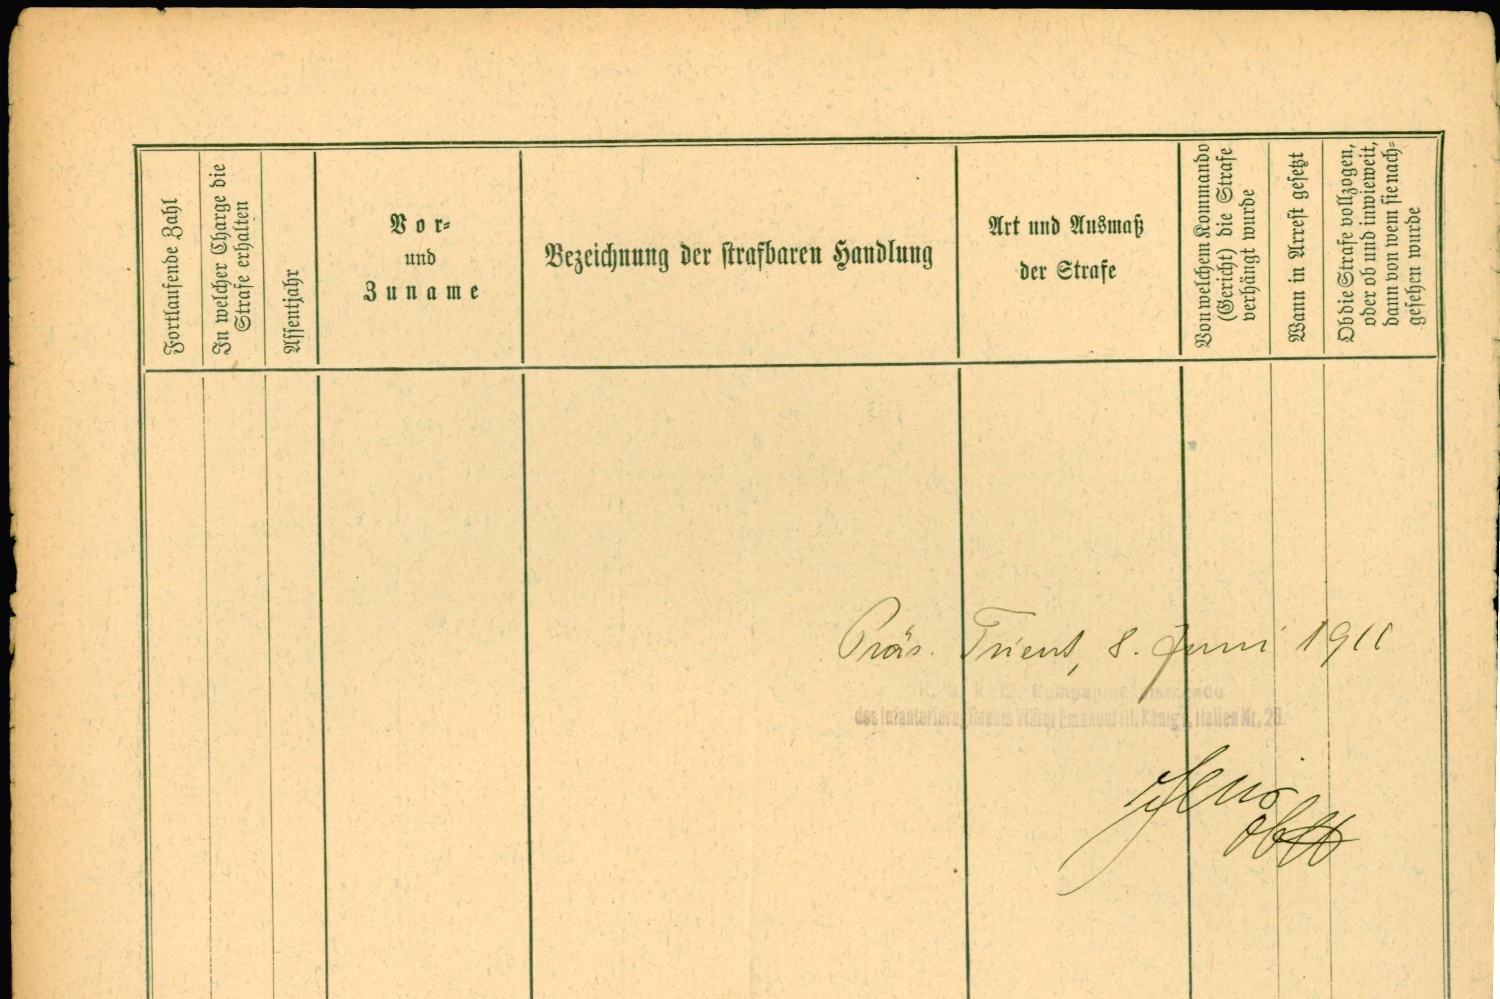 Fortlaufende Zahl
In welcher Charge die
Strafe erhalten
Assentjahr
Vor-
und
Zuname
Bezeichnung der strafbaren Handlung
Art und Ausmaß
der Strafe
Von welchem Kommando
(Gericht) die Strafe
verhängt wurde
Wann in Arrest gesetzt
Ob die Strafe vollzogen,
oder ob und inwieweit,
dann von wem sie nach-
gesehen wurde
Präs. Trient, 8. Juni 1911
K. u. k. 12. Kompagniekommando
des Infanterieregiments Viktor Emanuel III. König v. Italien Nr. 28.